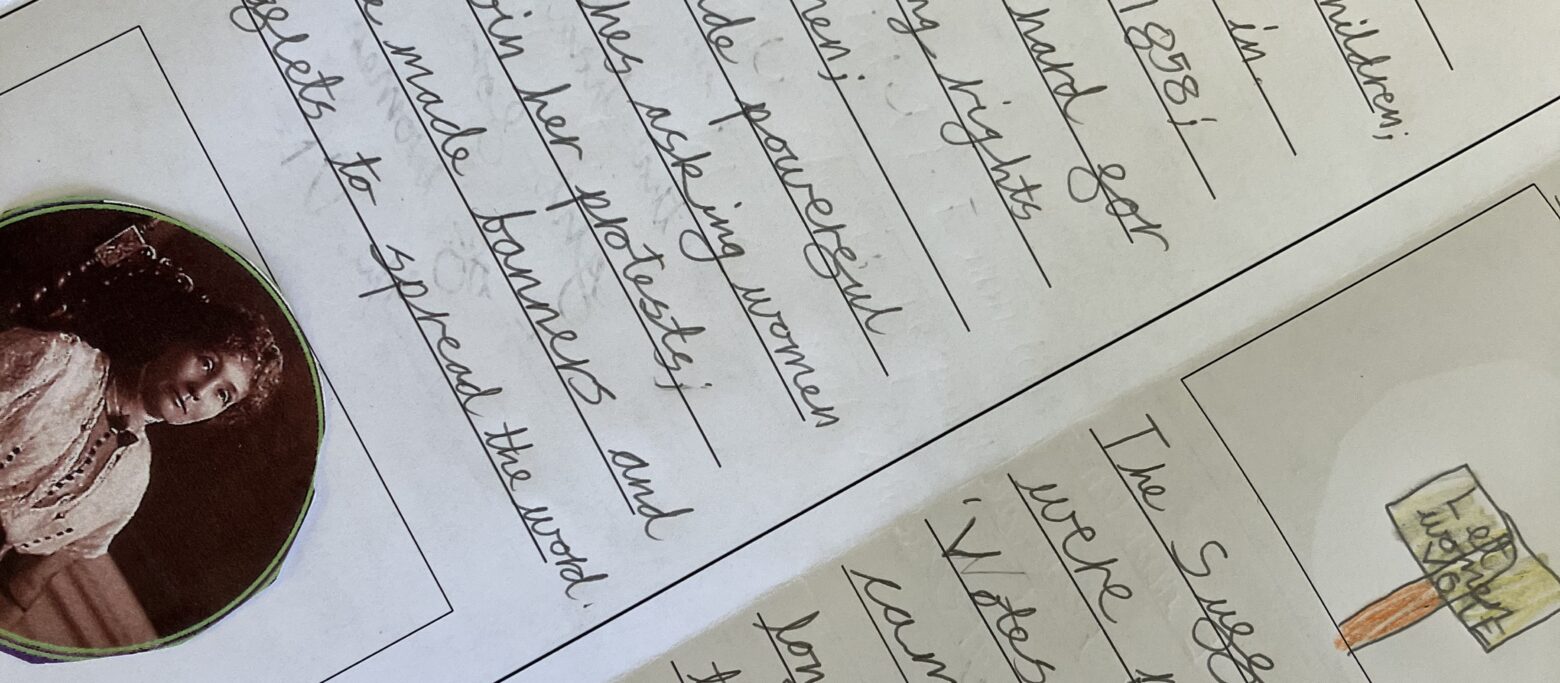 hildren;
in
1858;
hard for
ng rights
en;
de powerful
hes asking women
oin her protests;
e made banners and
flets to spread the word.
Let
women
vote
The Suff
were
'Votes
cam
lon